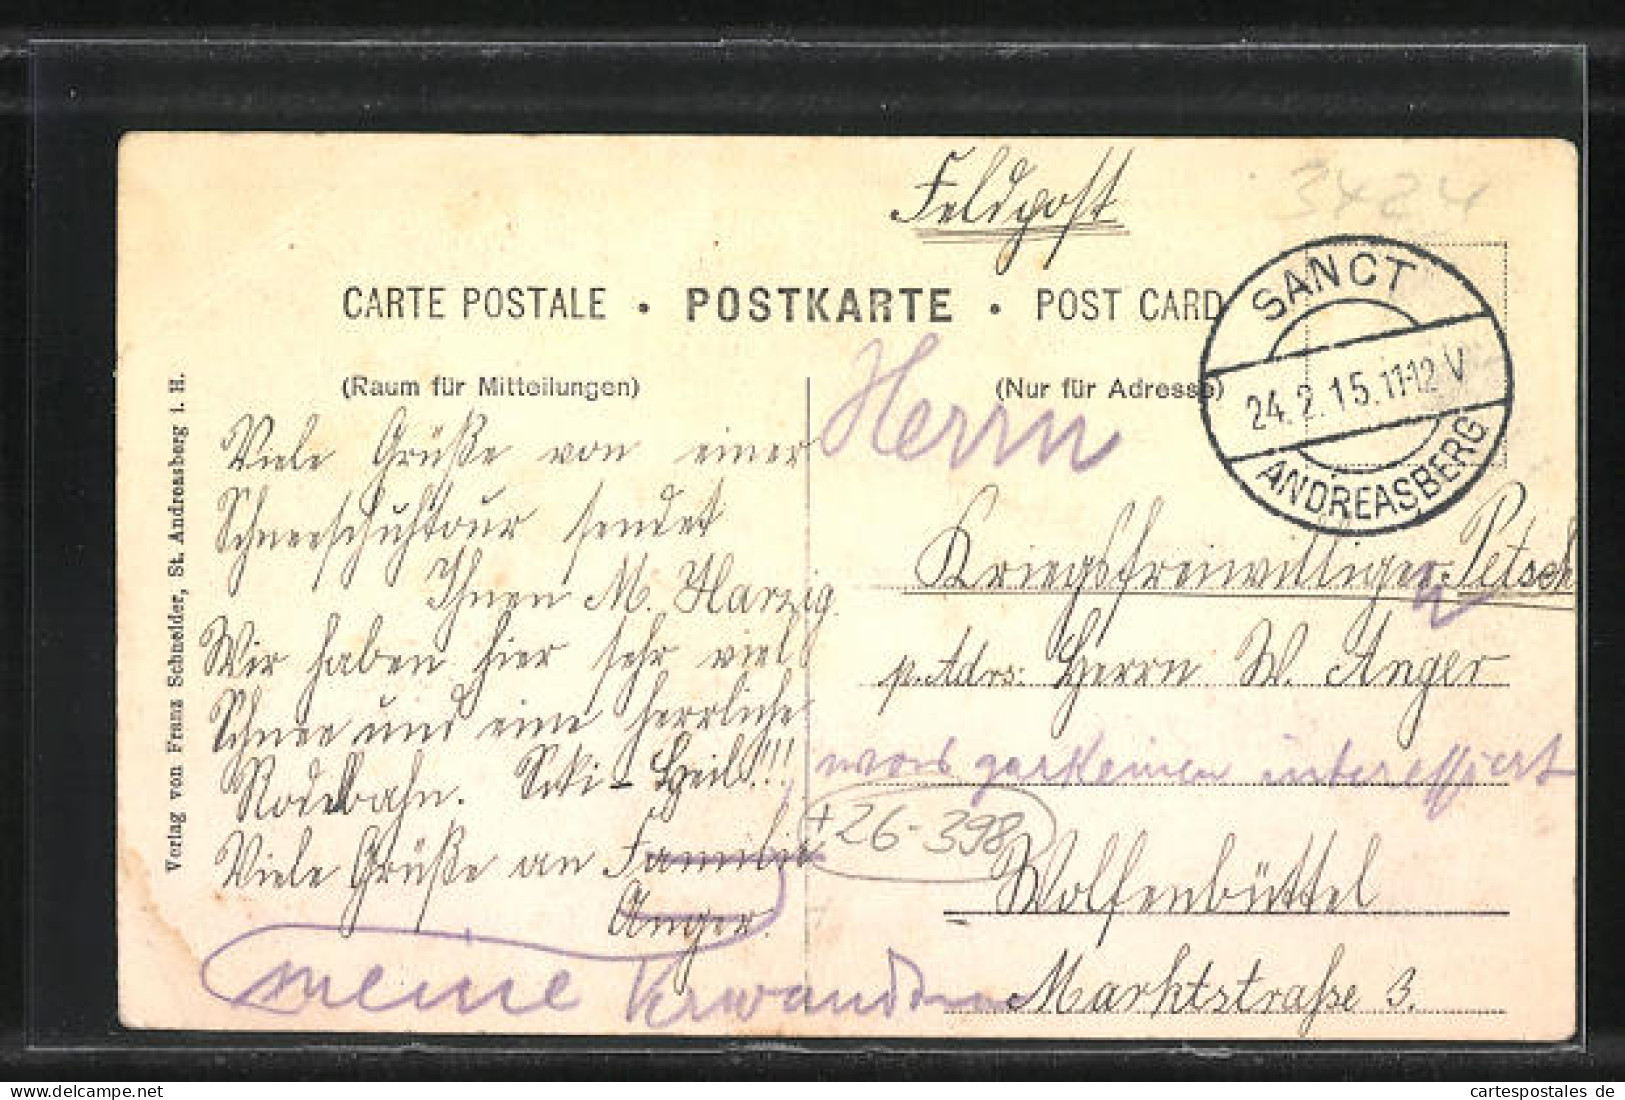 Feldpost
3424
CARTE POSTALE • POSTKARTE • POST CARD
SANCT
24.2.15.11-12V
ANDREASBERG
(Raum für Mitteilungen)
(Nur für Adresse)
Verlag von Franz Schneider, St. Andreasberg i. H.
Viele Grüße von einer
Schneeschuhtour sendet
Ihnen M. Harzig.
Wir haben hier sehr viel
Schnee und eine herrliche
Rodelbahn. Ski-Heil!!!
Viele Grüße an Familie
Anger.
meine Verwandten
Herrn
Kriegsfreiwilliger Petsch
p. Adrs: Herrn W. Anger
was gar keinen interessiert
+26-398
Wolfenbüttel
Marktstraße 3.
cartespostales de